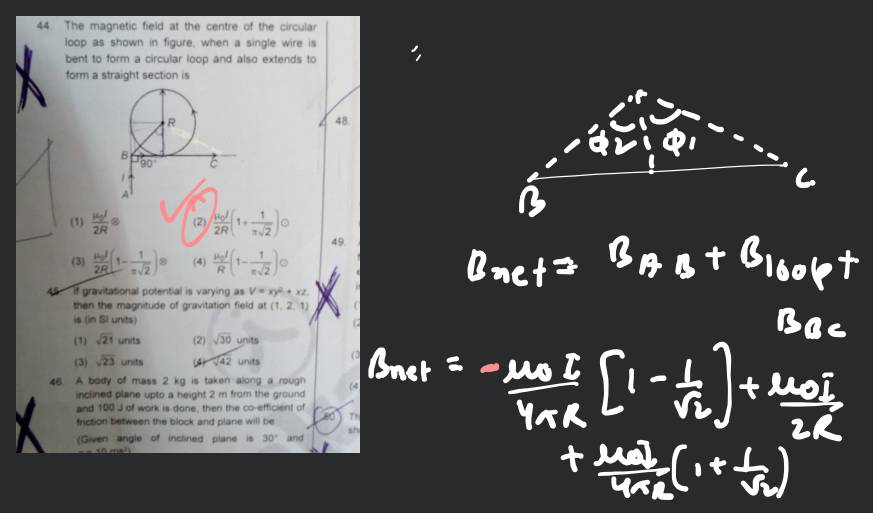 44. The magnetic field at the centre of the circular
loop as shown in figure, when a single wire is
bent to form a circular loop and also extends to
form a straight section is
R
B
90°
C
I
A
(1) μ₀I/2R ⊗ (2) μ₀I/2R (1 + 1/π√2) ⊙
(3) μ₀I/2R (1 − 1/π√2) ⊗ (4) μ₀I/R (1 − 1/π√2) ⊙
45. If gravitational potential is varying as V = xy² + xz,
then the magnitude of gravitation field at (1, 2, 1)
is (in SI units)
(1) √21 units (2) √30 units
(3) √23 units (4) √42 units
46. A body of mass 2 kg is taken along a rough
inclined plane upto a height 2 m from the ground
and 100 J of work is done, then the co-efficient of
friction between the block and plane will be
(Given angle of inclined plane is 30° and
48.
49.
50 Th
Φ2 Φ1
B C
Bnet = BAB + Bloop +
BBC
Bnet = - μoI/4πR [1 - 1/√2] + μoI/2R
+ μoI/4πR (1 + 1/√2)